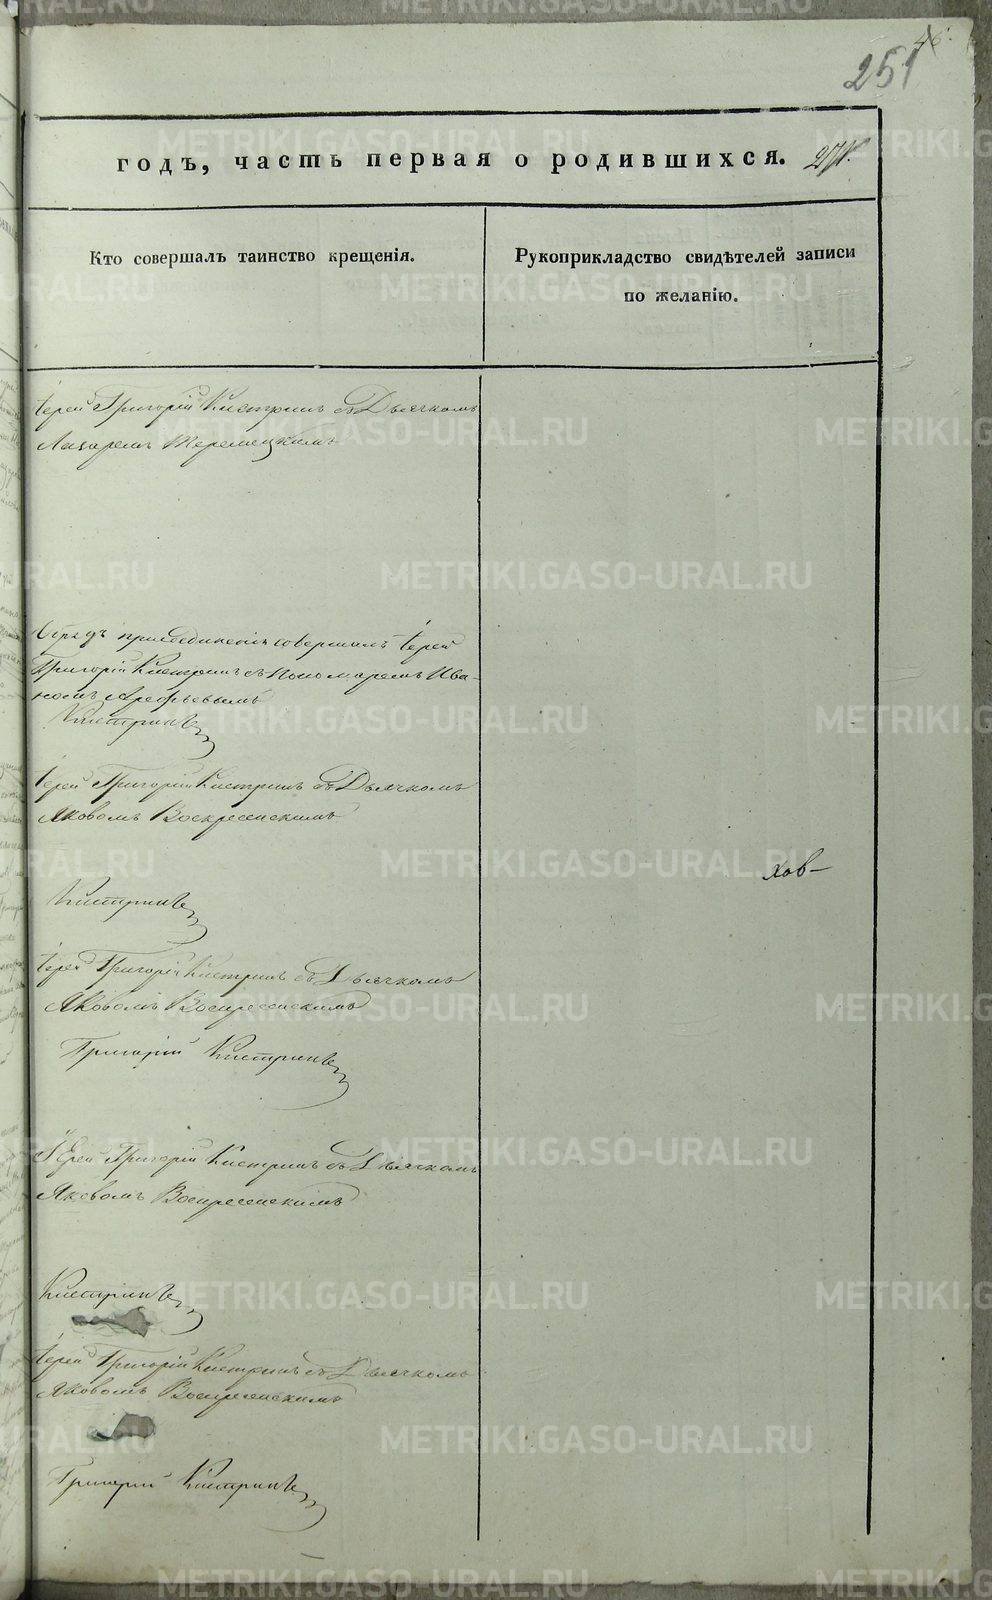 46.
251
годъ, часть первая о родившихся.
Кто совершалъ таинство крещенія.
Рукоприкладство свидѣтелей записи
по желанію.
Іерей Григорій Кистринъ съ Дьячкомъ
Лазаремъ Теремецкимъ
Обрядъ присоединенія совершалъ Іерей
Григорій Кистринъ съ Пономаремъ Ива-
номъ Арефьевымъ
Кистринъ
Іерей Григорій Кистринъ съ Дьячкомъ
Яковомъ Воскресенскимъ
хов-
Кистринъ
Іерей Григорій Кистринъ съ Дьячкомъ
Яковомъ Воскресенскимъ
Григорій Кистринъ
Іерей Григорій Кистринъ съ Дьячкомъ
Яковомъ Воскресенскимъ
Кистринъ
Іерей Григорій Кистринъ съ Дьячкомъ
Яковомъ Воскресенскимъ
Григорій Кистринъ
METRIKI.GASO-URAL.RU